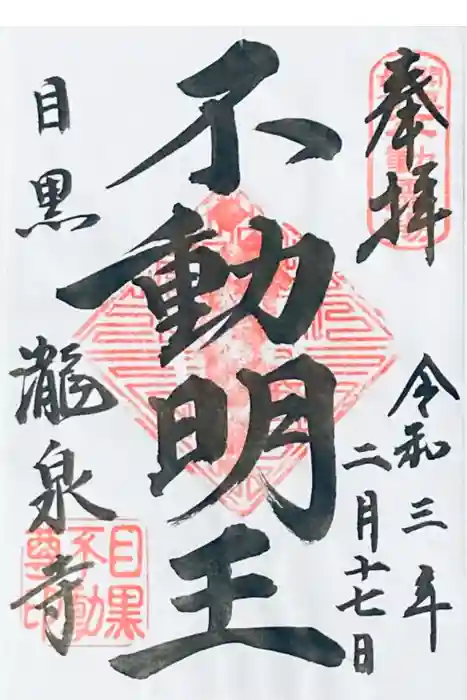 奉拝
令和三年
二月十七日
不動明王
目黒
瀧泉寺
目黒
不動
尊印